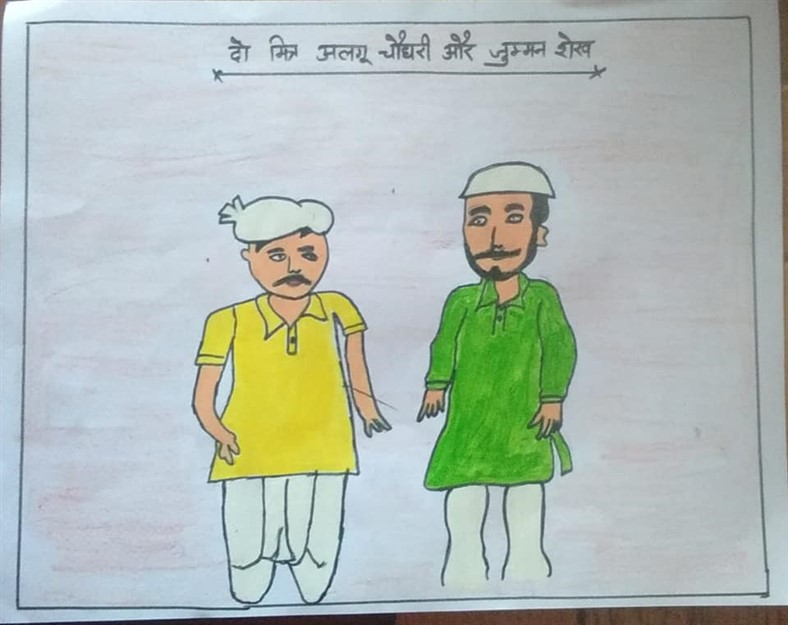 दो मित्र अलगू चौधरी और जुम्मन शेख